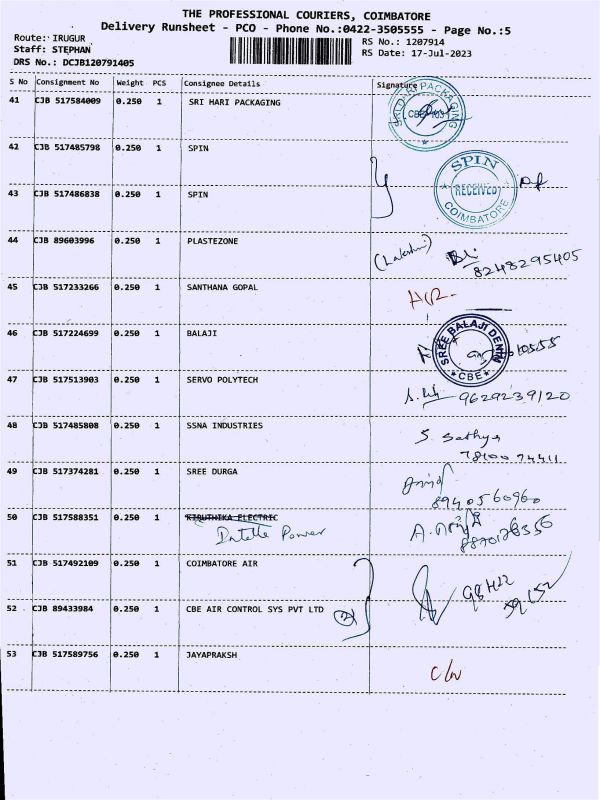 THE PROFESSIONAL COURIERS, COIMBATORE
Delivery Runsheet - PCO - Phone No.:0422-3505555 - Page No.:5
Route: IRUGUR
Staff: STEPHAN
DRS No.: DCJB120791405
RS No.: 1207914
RS Date: 17-Jul-2023
S No Consignment No Weight PCS Consignee Details Signature
41 CJB 517584009 0.250 1 SRI HARI PACKAGING
42 CJB 517485798 0.250 1 SPIN
SPIN
RECEIVED
COIMBATORE
43 CJB 517486838 0.250 1 SPIN
44 CJB 89603996 0.250 1 PLASTEZONE
(Lakshmi)
8248295405
45 CJB 517233266 0.250 1 SANTHANA GOPAL
46 CJB 517224699 0.250 1 BALAJI
SREE BALAJI DENIM
CBE
47 CJB 517513903 0.250 1 SERVO POLYTECH
9629239120
48 CJB 517485808 0.250 1 SSNA INDUSTRIES
S. Sathya
9810074411
49 CJB 517374281 0.250 1 SREE DURGA
8940560960
50 CJB 517588351 0.250 1 KIRUTHIKA ELECTRIC
Power
51 CJB 517492109 0.250 1 COIMBATORE AIR
52 CJB 89433984 0.250 1 CBE AIR CONTROL SYS PVT LTD
53 CJB 517589756 0.250 1 JAYAPRAKSH